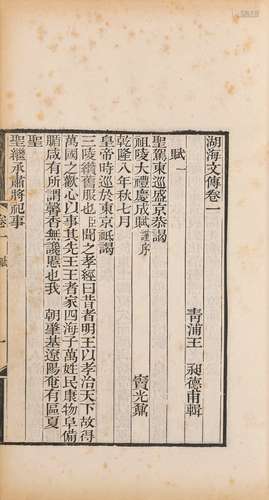 湖海文傳卷一
青浦王 昶德甫輯
賦一
聖駕東巡盛京恭謁
祖陵大禮慶成賦 謹序
竇光鼐
乾隆八年秋七月
皇帝時巡於東京祗謁
三陵纘舊服也臣聞之孝經曰昔者明王以孝治天下故得
萬國之歡心以事其先王王者家四海子萬姓民康物阜備
腯咸有所謂馨香無讒慝也我 朝肇基遼陽奄有區夏
聖
聖繼承肅將祀事
卷一 賦 一